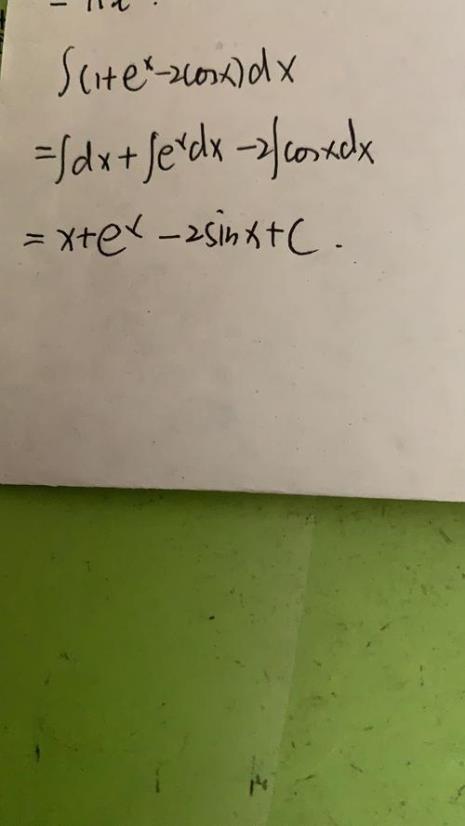 ∫(1+eˣ-2cosx)dx
=∫dx+∫eˣdx-2∫cosxdx
=x+eˣ-2sinx+C.